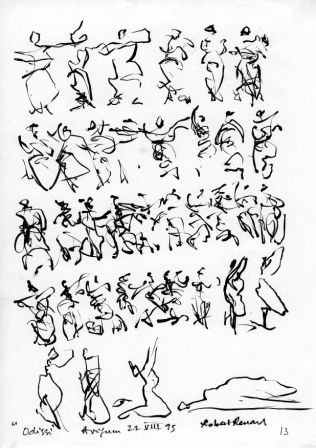 " Odissi Avignon 21 VIII 95 Robert Renard 13